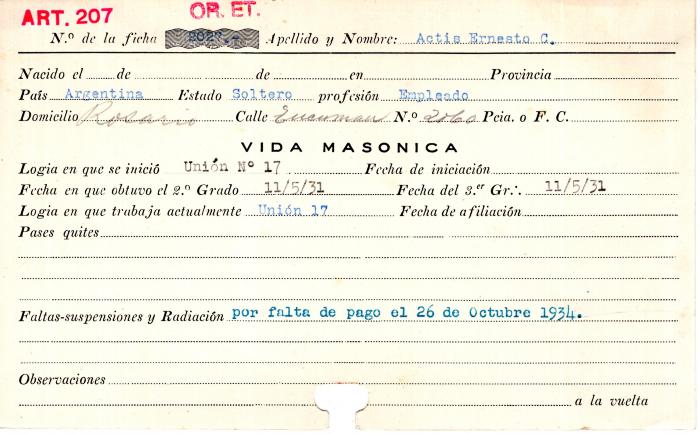 ART. 207 OR. ET.
N.º de la ficha Apellido y Nombre: Actis Ernesto C.
Nacido el de de en Provincia
País Argentina Estado Soltero profesión Empleado
Domicilio Rosario Calle Tucuman N.º 2060 Pcia. o F. C.
VIDA MASONICA
Logia en que se inició Unión Nº 17 Fecha de iniciación
Fecha en que obtuvo el 2.º Grado 11/5/31 Fecha del 3.er Gr∴ 11/5/31
Logia en que trabaja actualmente Unión 17 Fecha de afiliación
Pases quites
Faltas-suspensiones y Radiación por falta de pago el 26 de Octubre 1934.
Observaciones
a la vuelta